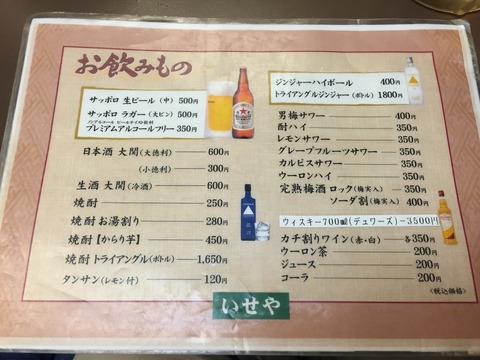 お飲みもの
サッポロ 生ビール (中) 500円
サッポロ ラガー (大ビン) 500円
ノンアルコール ビールテイスト飲料
プレミアムアルコールフリー 350円
日本酒 大関 (大徳利) 600円
(小徳利) 300円
生酒 大関 (冷酒) 600円
焼酎 250円
焼酎お湯割り 280円
焼酎【からり芋】 450円
焼酎 トライアングル(ボトル) 1,650円
タンサン (レモン付) 120円
ジンジャーハイボール 400円
トライアングルジンジャー (ボトル) 1800円
男梅サワー 400円
酎ハイ 350円
レモンサワー 350円
グレープフルーツサワー 350円
カルピスサワー 350円
ウーロンハイ 350円
完熟梅酒 ロック (梅実入) 350円
ソーダ割 (梅実入) 400円
ウィスキー700ml(デュワーズ)-3500円
カチ割りワイン (赤・白) 各350円
ウーロン茶 200円
ジュース 200円
コーラ 200円
<税込価格>
いせや